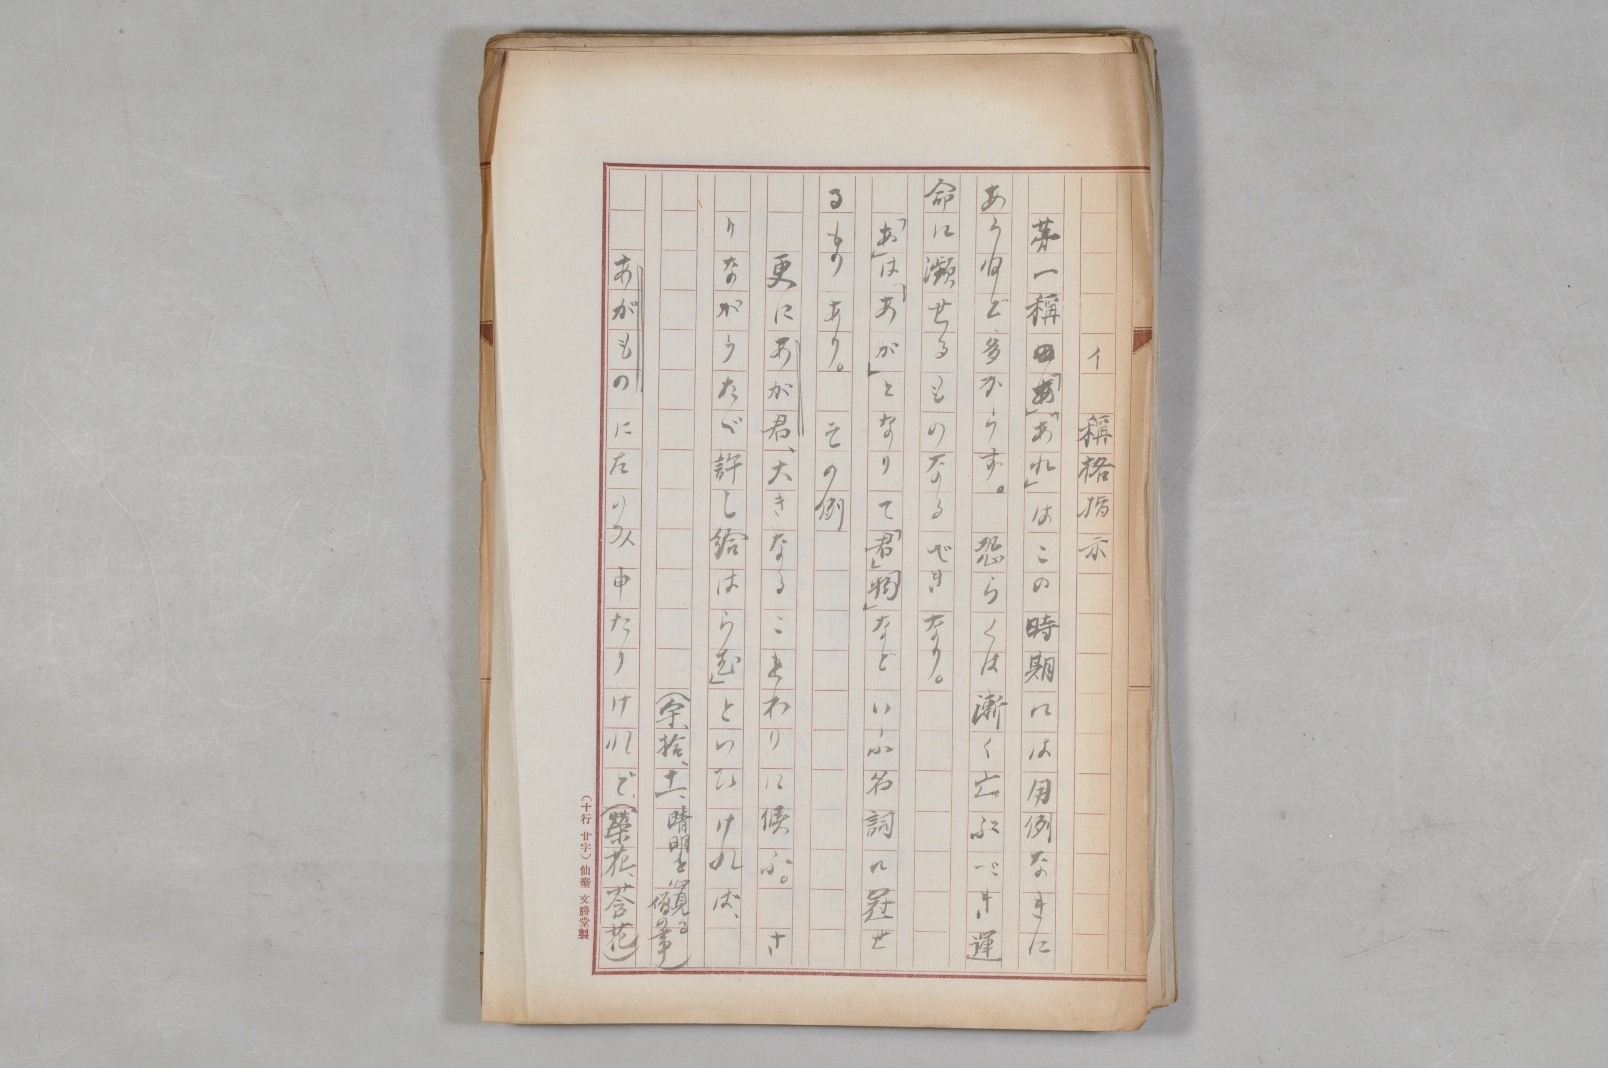 イ　稱格指示
第一稱「あ」「あれ」はこの時期には用例なきに
あらねど多からず。恐らくは漸く亡ぶべき運
命に瀕せるものなるべきなり。
「あ」は「あが」となりて「君」「物」などいふ名詞に冠せ
るものあり。その例
更にあが君、大きなることわりに候ふ。さ
りながらたゞ許し給はらむ」といひければ、
(宇拾、十一、晴明を覽る僧事)
あがものにたのみ申たりけれど、(榮花、莟花)
(十行 廿字) 仙臺 文勝堂製